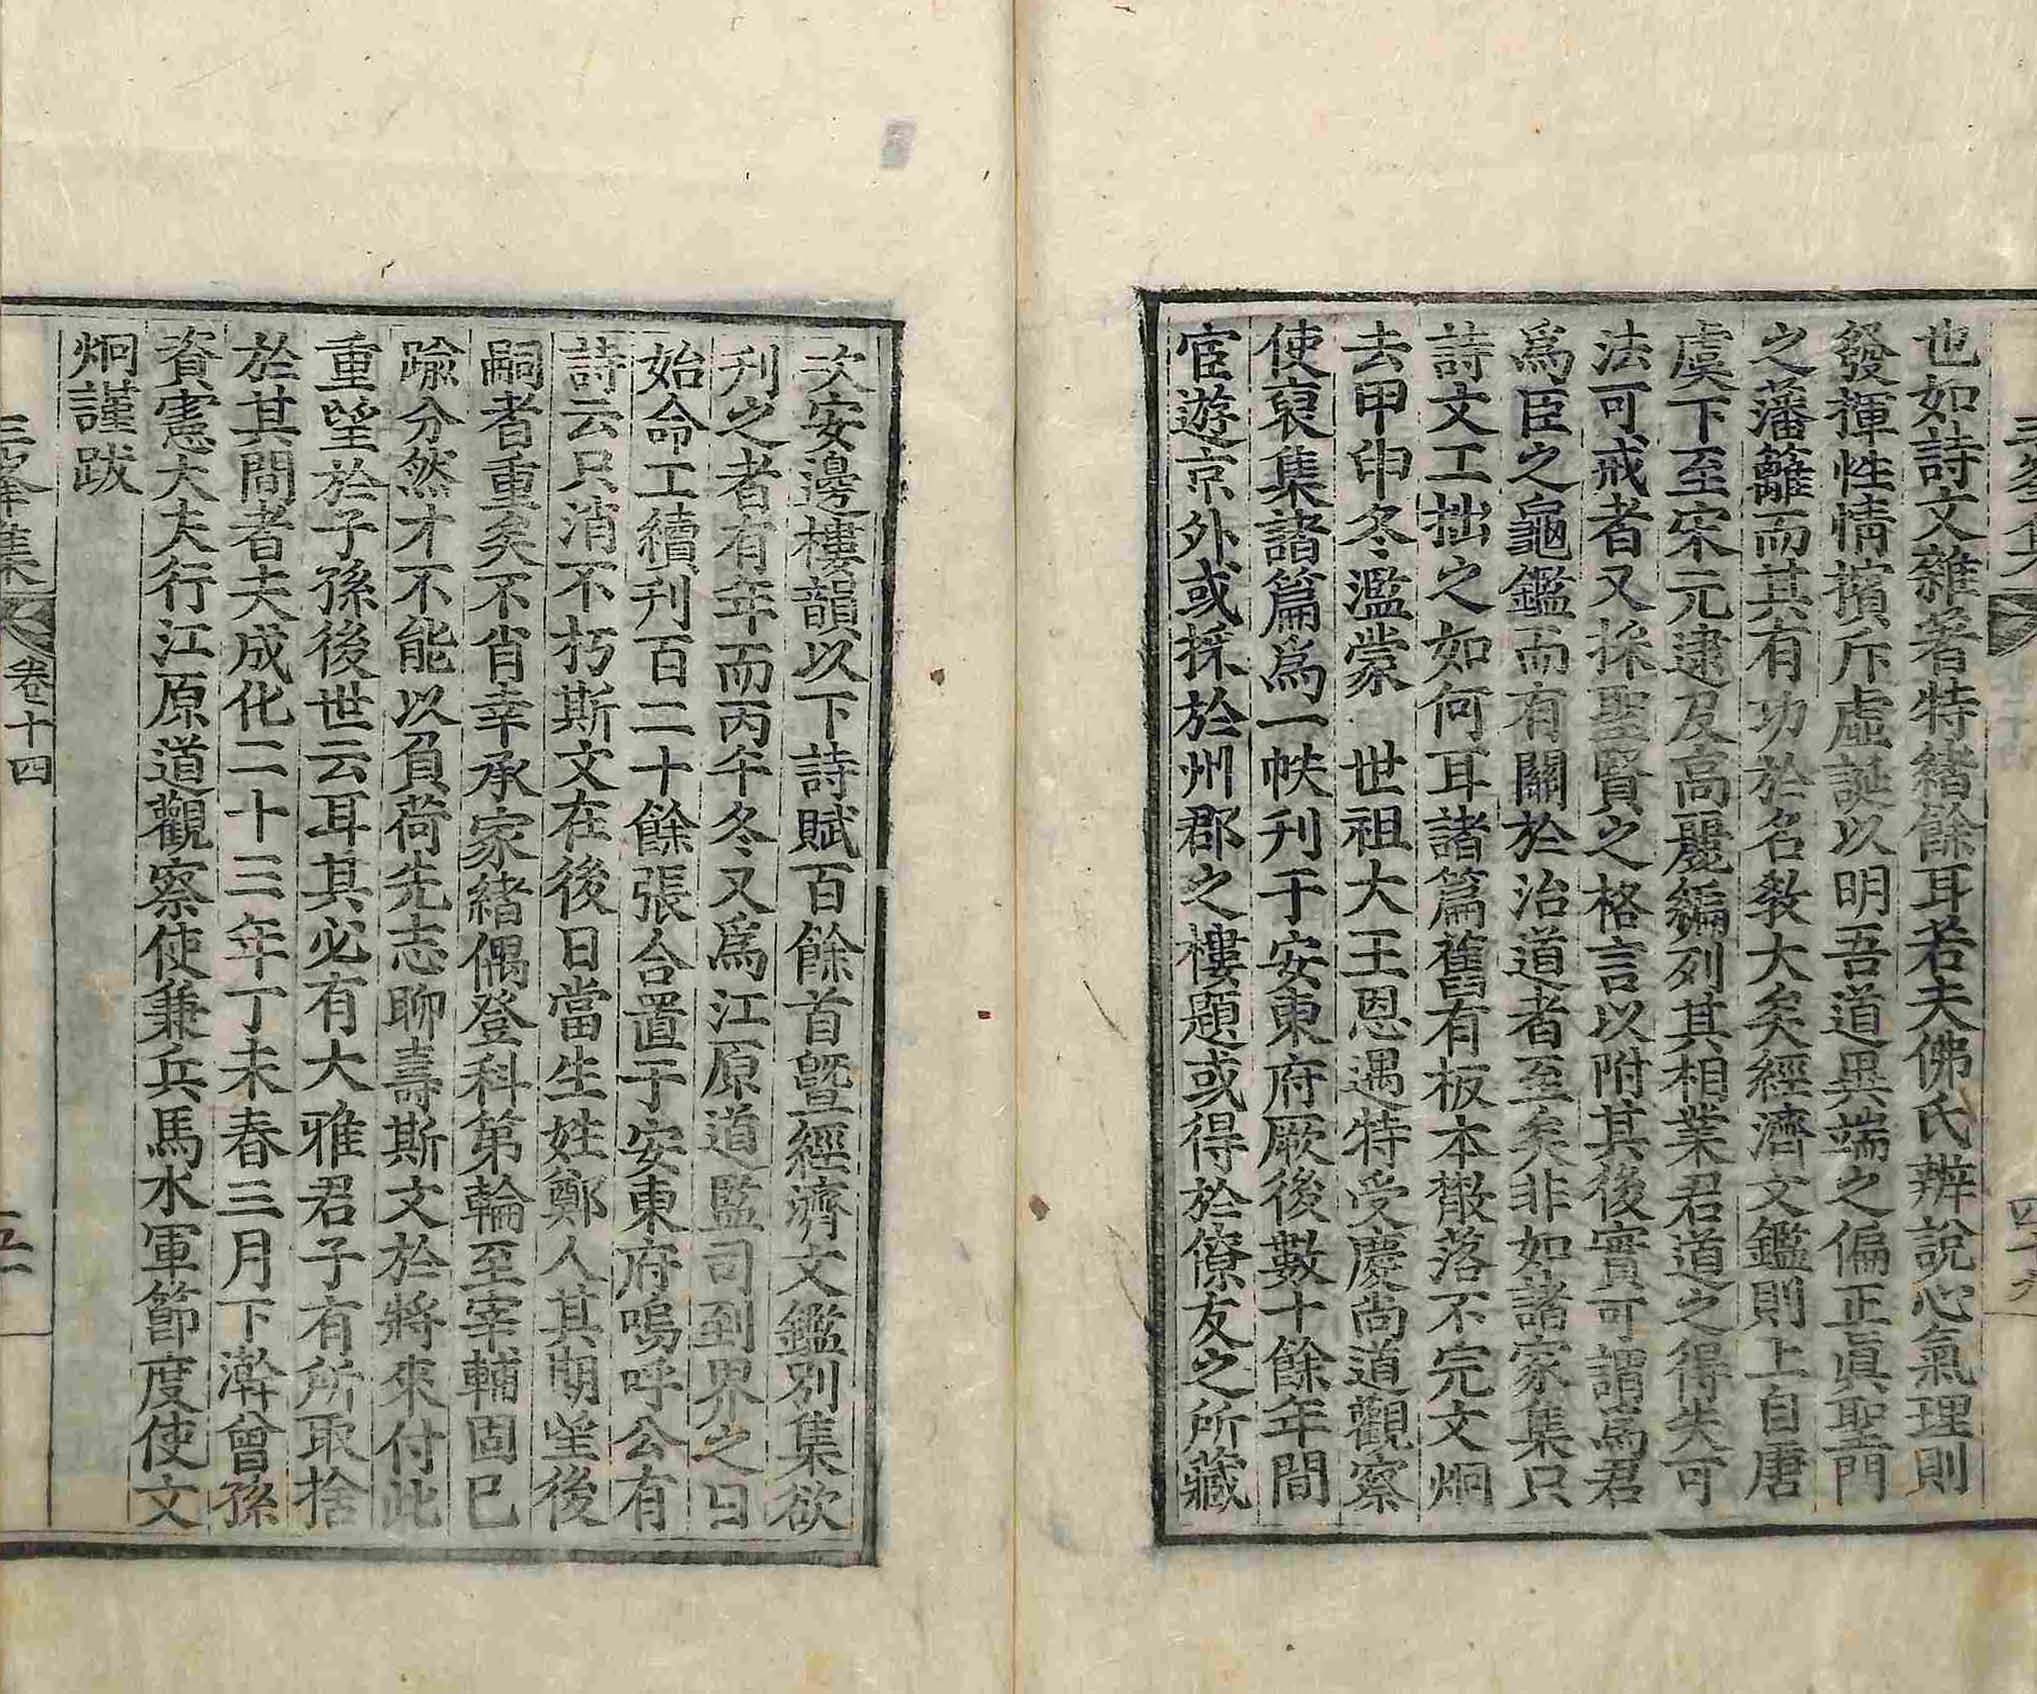 也如詩文雜著特緖餘耳若夫佛氏辨說心氣理則
發揮性情擯斥虛誕以明吾道異端之偏正眞聖門
之藩籬而其有功於名敎大矣經濟文鑑則上自唐
虞下至宋元逮及高麗編列其相業君道之得失可
法可戒者又採聖賢之格言以附其後實可謂爲君
爲臣之龜鑑而有關於治道者至矣非如諸家集只
詩文工拙之如何耳諸篇舊有板本散落不完文炯
去甲申冬濫蒙 世祖大王恩遇特受慶尙道觀察
使裒集諸篇爲一帙刋于安東府厥後數十餘年間
宦遊京外或採於州郡之樓題或得於僚友之所藏
次安邊樓韻以下詩賦百餘首曁經濟文鑑別集欲
刋之者有年而丙午冬又爲江原道監司到界之日
始命工續刋百二十餘張合置于安東府嗚呼公有
詩云只消不朽斯文在後日當生姓鄭人其期望後
嗣者重矣不肖幸承家緖偶登科第輪至宰輔固已
踰分然才不能以負荷先志聊壽斯文於將來付此
重望於子孫後世云耳其必有大雅君子有所取捨
於其間者夫成化二十三年丁未春三月下澣曾孫
資憲大夫行江原道觀察使兼兵馬水軍節度使文
炯謹跋
三峯集
卷十四